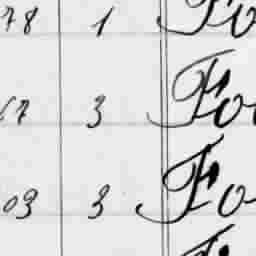 78 1 Fo
67 3 Fo
03 3 Fo